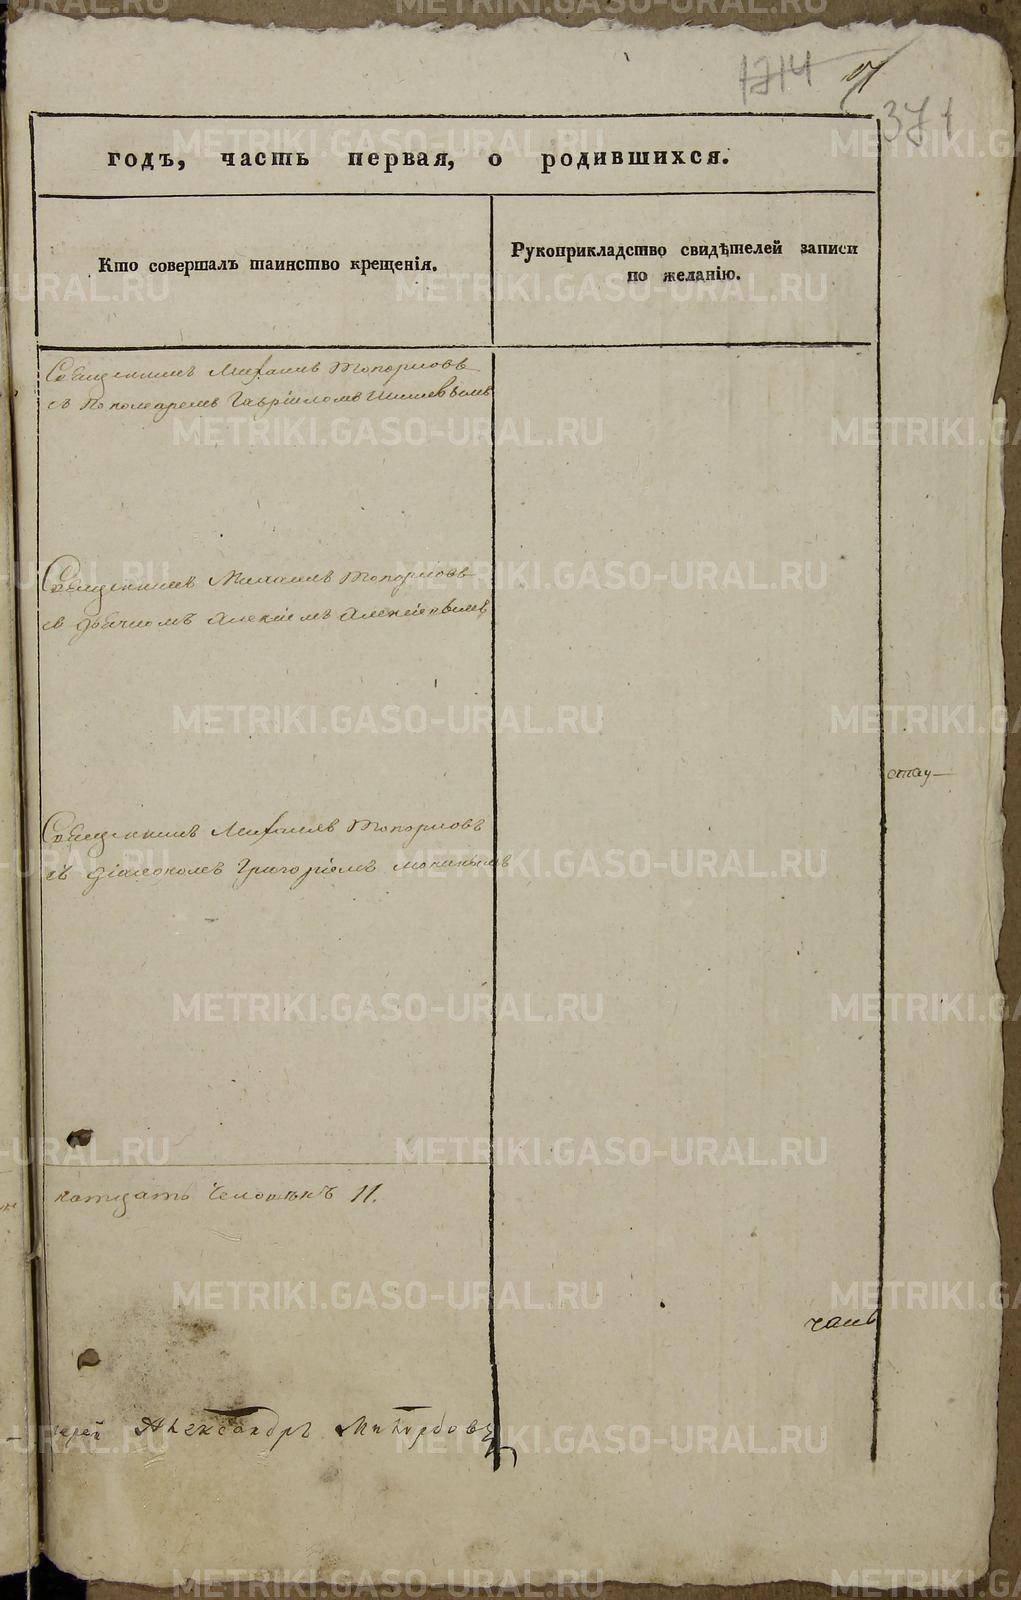 1714
371
годъ, часть первая, о родившихся.
Кто совершалъ таинство крещенія.
Рукоприкладство свидѣтелей записи
по желанію.
Священникъ Михаилъ Топорковъ
съ Пономаремъ Гавріиломъ
Священникъ Михаилъ Топорковъ
съ Алексіемъ
Священникъ Михаилъ Топорковъ
съ діакономъ Григоріемъ
человѣкъ 11.
часть
Іерей Александръ
METRIKI.GASO-URAL.RU